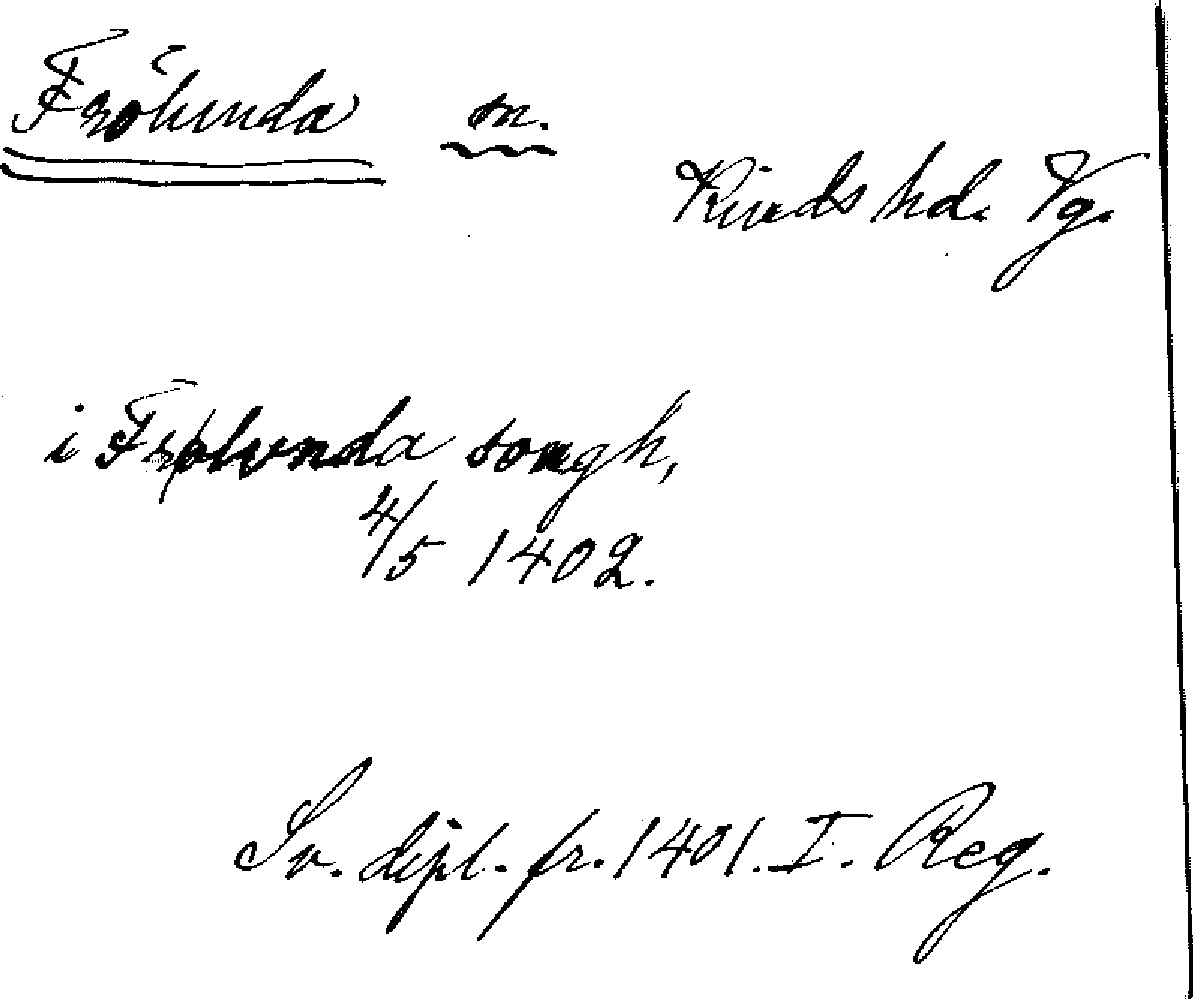 Frölunda sn.
Kinds hd. Vg.
i Frølvnda soægh,
4/5 1402.
Sv. dipl. fr. 1401. I. Reg.